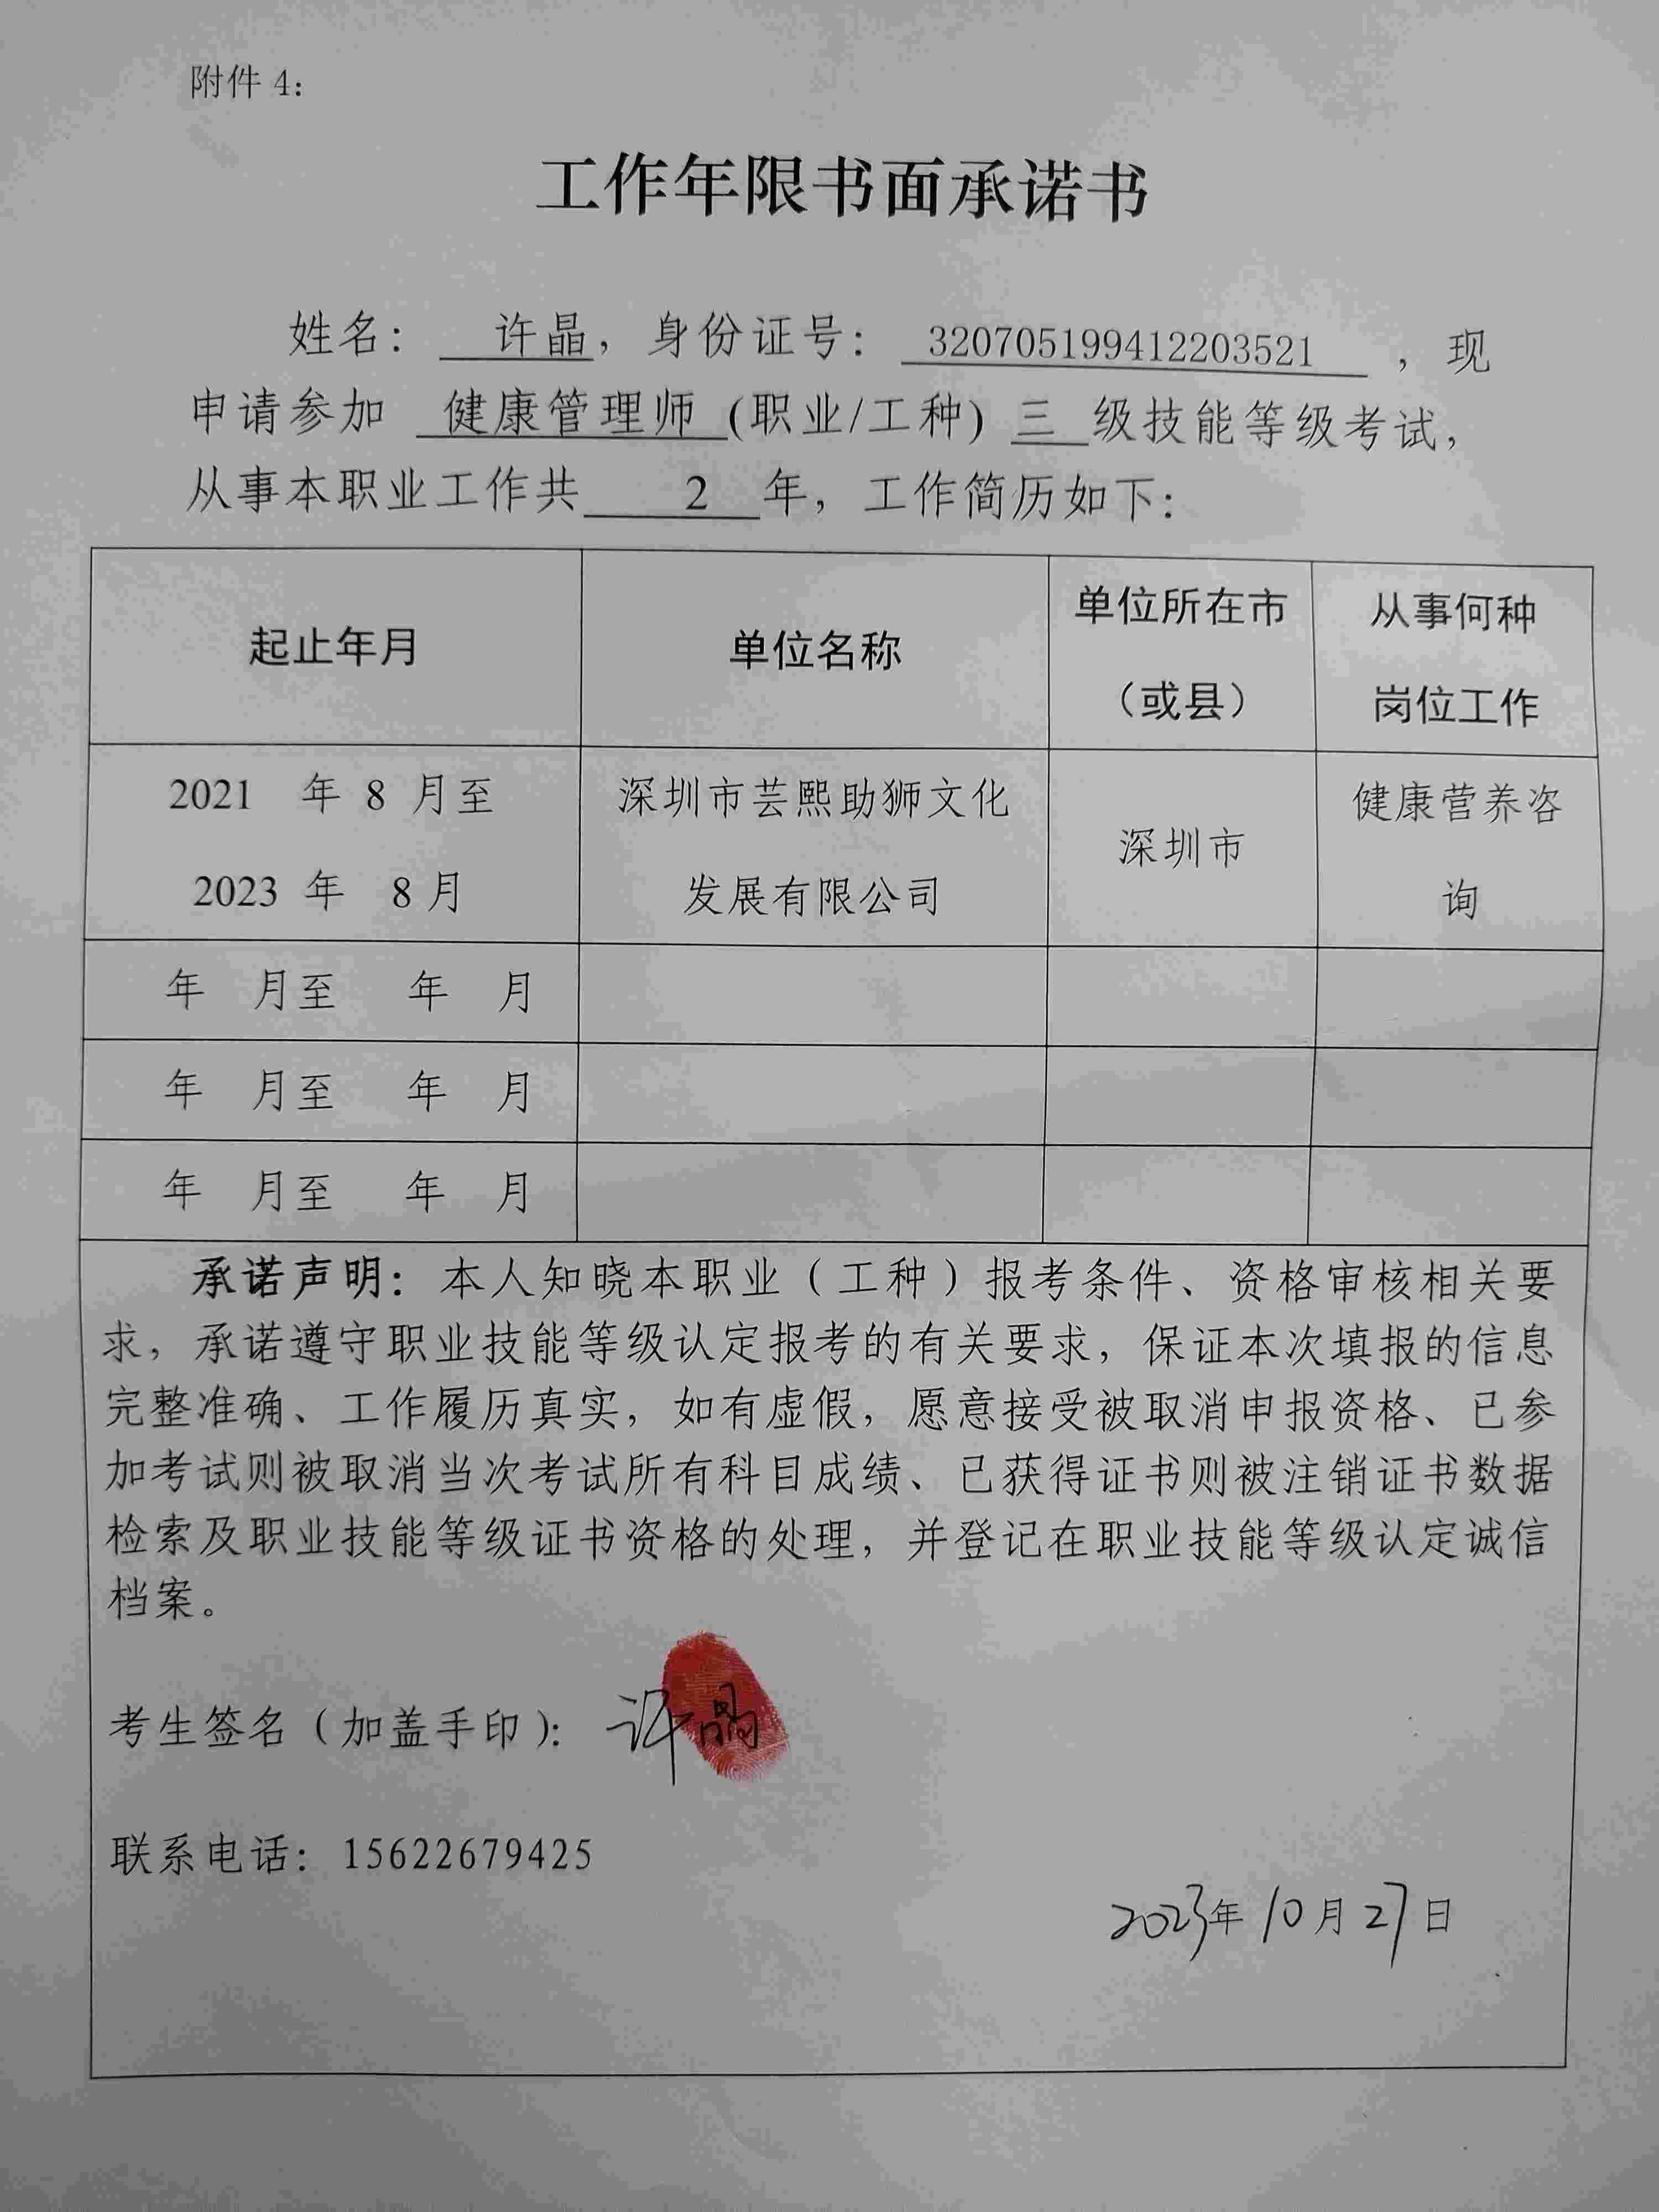 附件 4：
工作年限书面承诺书
姓名： 许晶，身份证号： 320705199412203521 ，现
申请参加 健康管理师 (职业/工种) 三 级技能等级考试，
从事本职业工作共 2 年，工作简历如下：
起止年月 单位名称 单位所在市（或县） 从事何种岗位工作
2021 年 8 月至 2023 年 8 月 深圳市芸熙助狮文化发展有限公司 深圳市 健康营养咨询
年 月至 年 月
年 月至 年 月
年 月至 年 月
承诺声明：本人知晓本职业（工种）报考条件、资格审核相关要
求，承诺遵守职业技能等级认定报考的有关要求，保证本次填报的信息
完整准确、工作履历真实，如有虚假，愿意接受被取消申报资格、已参
加考试则被取消当次考试所有科目成绩、已获得证书则被注销证书数据
检索及职业技能等级证书资格的处理，并登记在职业技能等级认定诚信
档案。
考生签名（加盖手印）： 许晶
联系电话：15622679425
2023年 10月 27日